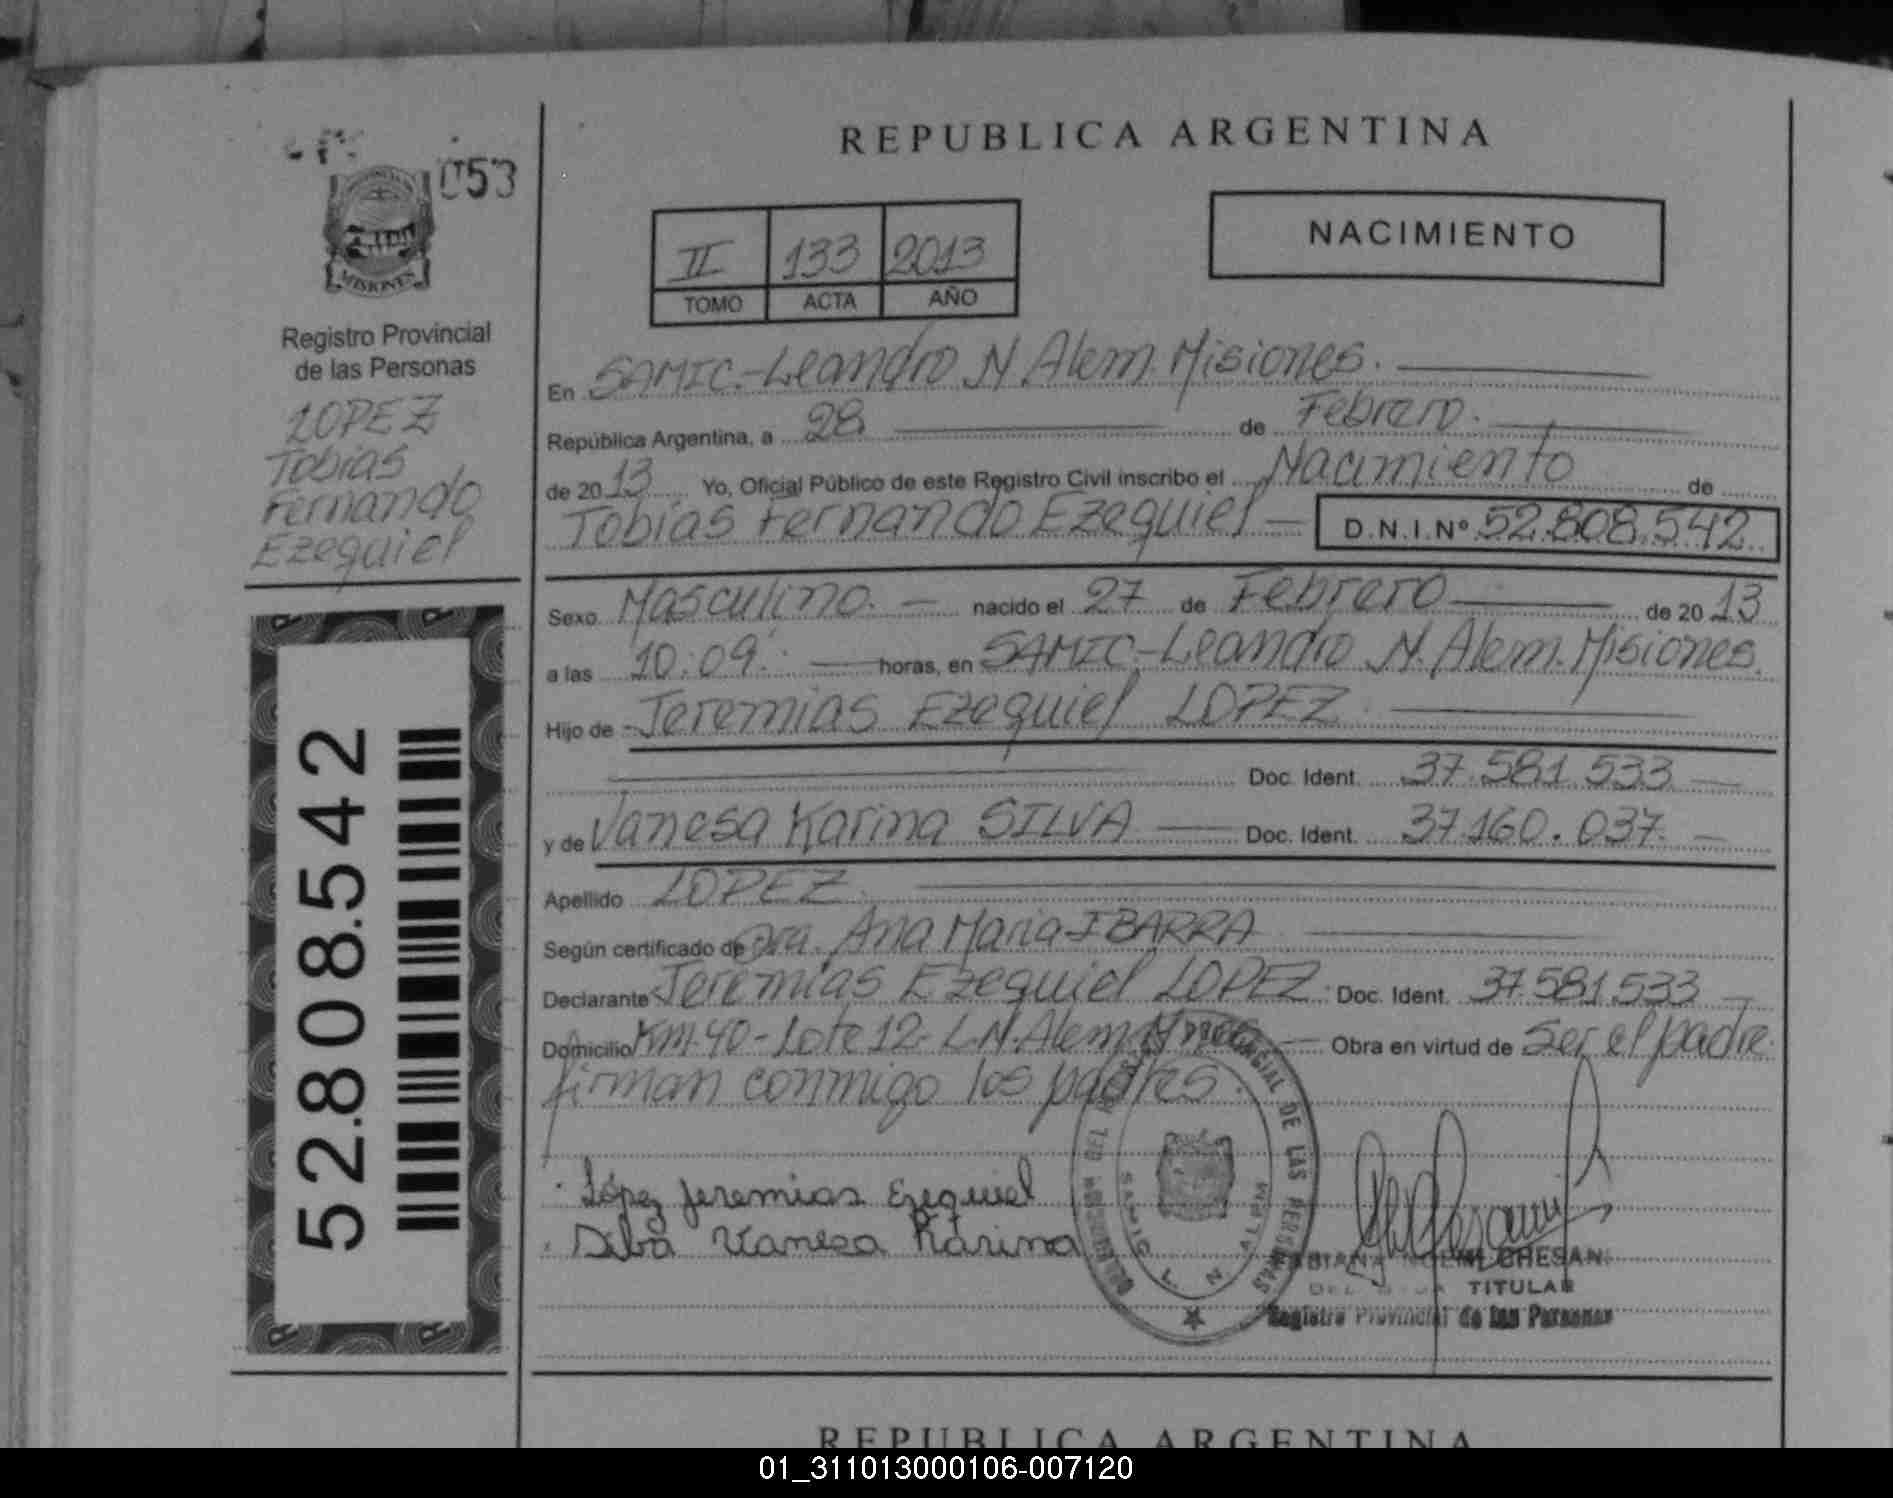 REPUBLICA ARGENTINA
053
MISIONES
Registro Provincial
de las Personas
LOPEZ
Tobias
Fernando
Ezequiel
52.808.542
NACIMIENTO
II 133 2013
TOMO ACTA AÑO
En SAMIC.-Leandro N. Alem. Misiones.
República Argentina, a 28 de Febrero.
de 2013 Yo, Oficial Público de este Registro Civil inscribo el Nacimiento de
Tobias Fernando Ezequiel D.N.I.Nº 52.808.542
Sexo Masculino. nacido el 27 de Febrero de 2013
a las 10:09. horas, en SAMIC-Leandro N. Alem. Misiones.
Hijo de Jeremias Ezequiel LOPEZ
Doc. Ident. 37.581.533
y de Vanesa Karina SILVA Doc. Ident. 37.160.037.
Apellido LOPEZ.
Según certificado de Dra. Ana Maria IBARRA
Declarante Jeremias Ezequiel LOPEZ. Doc. Ident. 37.581.533
Domicilio Km.40-Lote 12-L.N.Alem Obra en virtud de Ser el padre.
firman conmigo los padres.
López Jeremias Ezequiel
Silva Vanesa Karina
DE LAS PERSONAS
SAMIC L. N. ALEM
TITULAR
Registro Provincial de las Personas
REPUBLICA ARGENTINA
01_311013000106-007120